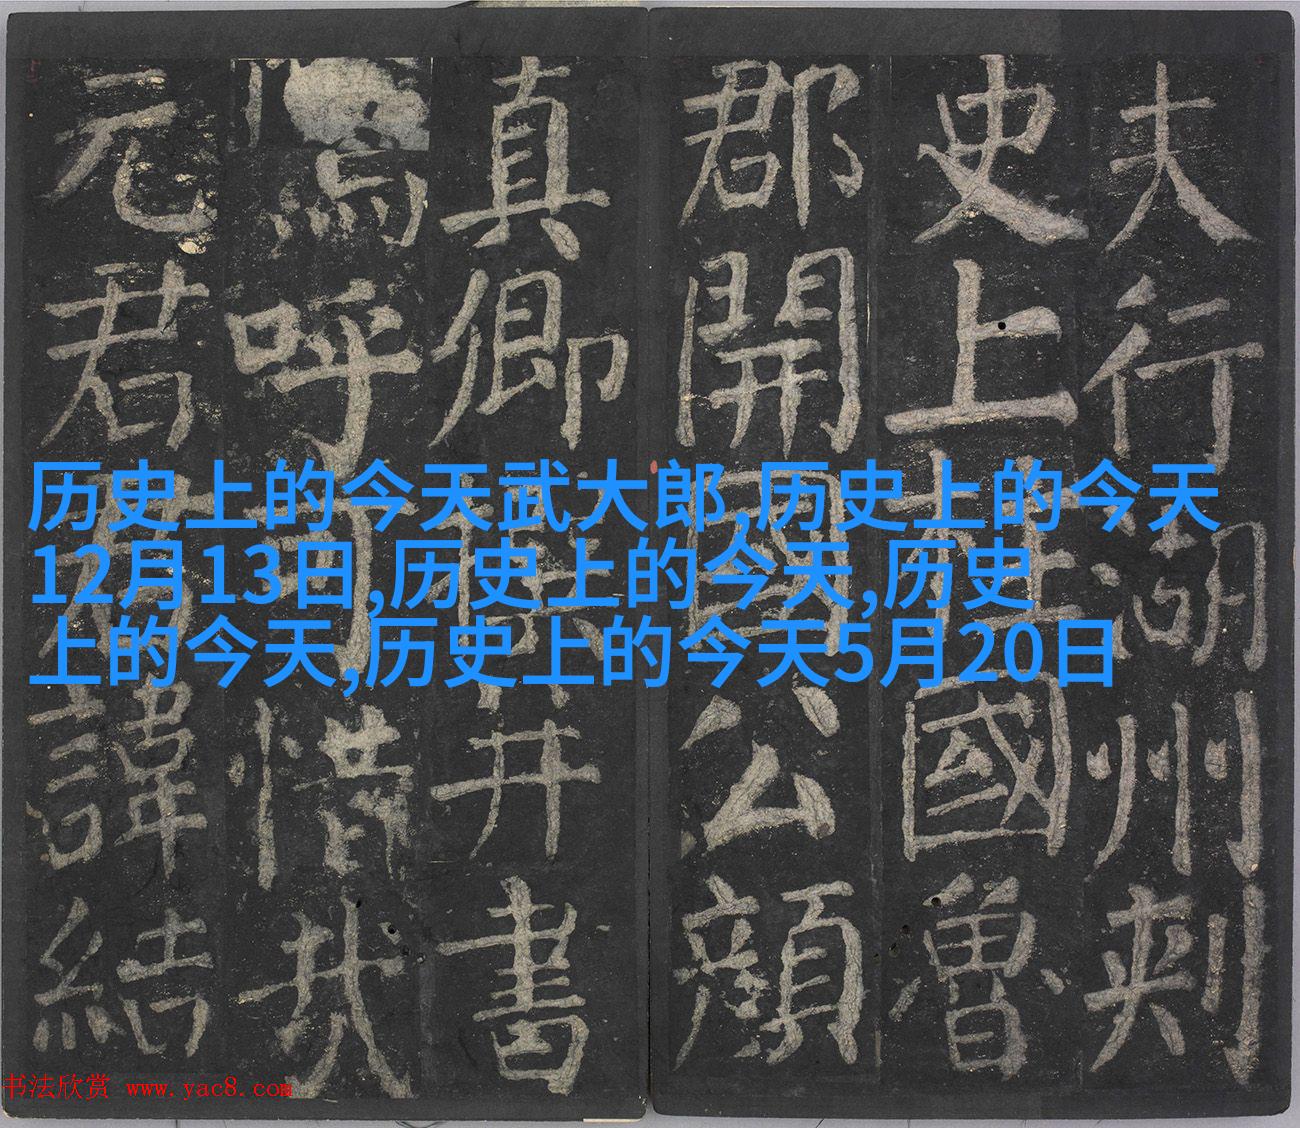 夫行湖州刺
史上柱國魯
郡開國公顏
真卿撰并書
嗚呼可惜哉
元君君諱結
历史上的今天武大郎,历史上的今天
12月13日,历史上的今天,历史
上的今天,历史上的今天5月20日
书法欣赏 www.yac8.com